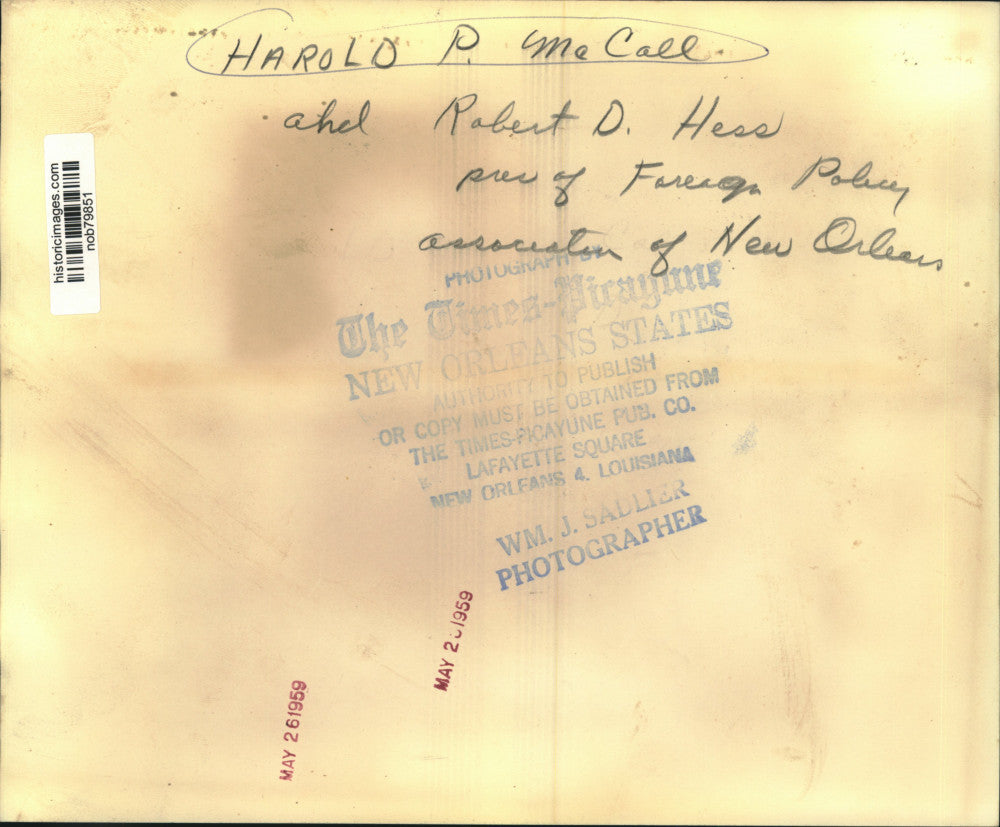 HAROLD P. McCall
and Robert D. Hess
pres of Foreign Policy
association of New Orleans
historicimages.com
nob79851
PHOTOGRAPH BY
The Times-Picayune
NEW ORLEANS STATES
AUTHORITY TO PUBLISH
OR COPY MUST BE OBTAINED FROM
THE TIMES-PICAYUNE PUB. CO.
LAFAYETTE SQUARE
NEW ORLEANS 4, LOUISIANA
WM. J. SADLIER
PHOTOGRAPHER
MAY 1959
MAY 261959